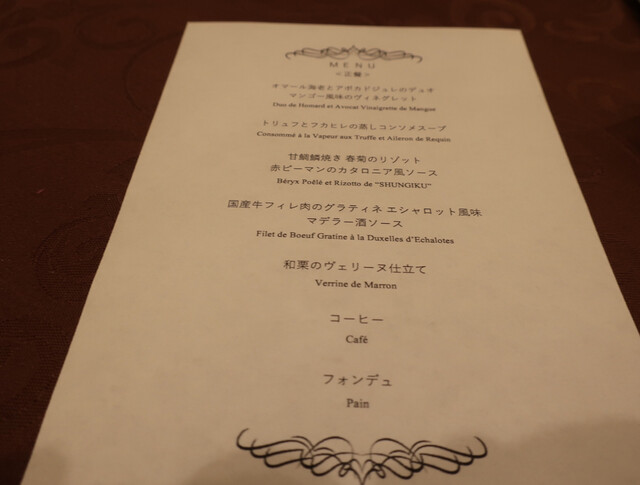 MENU
<正餐>
オマール海老とアボカドジュレのデュオ
マンゴー風味のヴィネグレット
Duo de Homard et Avocat Vinaigrette de Mangue
トリュフとフカヒレの蒸しコンソメスープ
Consommé à la Vapeur aux Truffe et Aileron de Requin
甘鯛鱗焼き 春菊のリゾット
赤ピーマンのカタロニア風ソース
Béryx Poêlé et Rizotto de “SHUNGIKU”
国産牛フィレ肉のグラティネ エシャロット風味
マデラー酒ソース
Filet de Boeuf Gratine à la Duxelles d’Echalotes
和栗のヴェリーヌ仕立て
Verrine de Marron
コーヒー
Cafè
フォンデュ
Pain